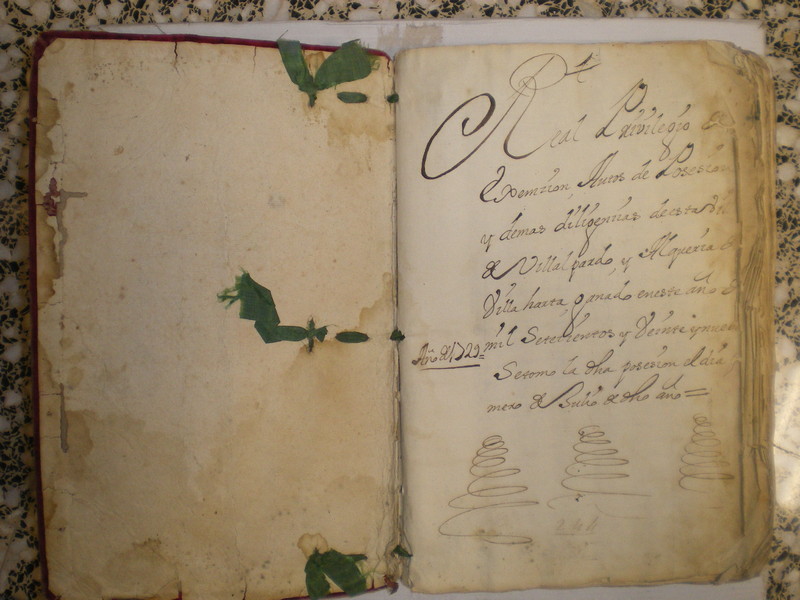 Real Privilegio de
Exemzion, Autos de Posesion
y demas diligenzias de esta Vi
de Villalpardo, y Alqueria de
Villa harta, ganado en este año de
mil Setezientos y Veinte y nueve
Año de 1729=
Se tomo la dha posesion el dia
mero de Julio de dho año=